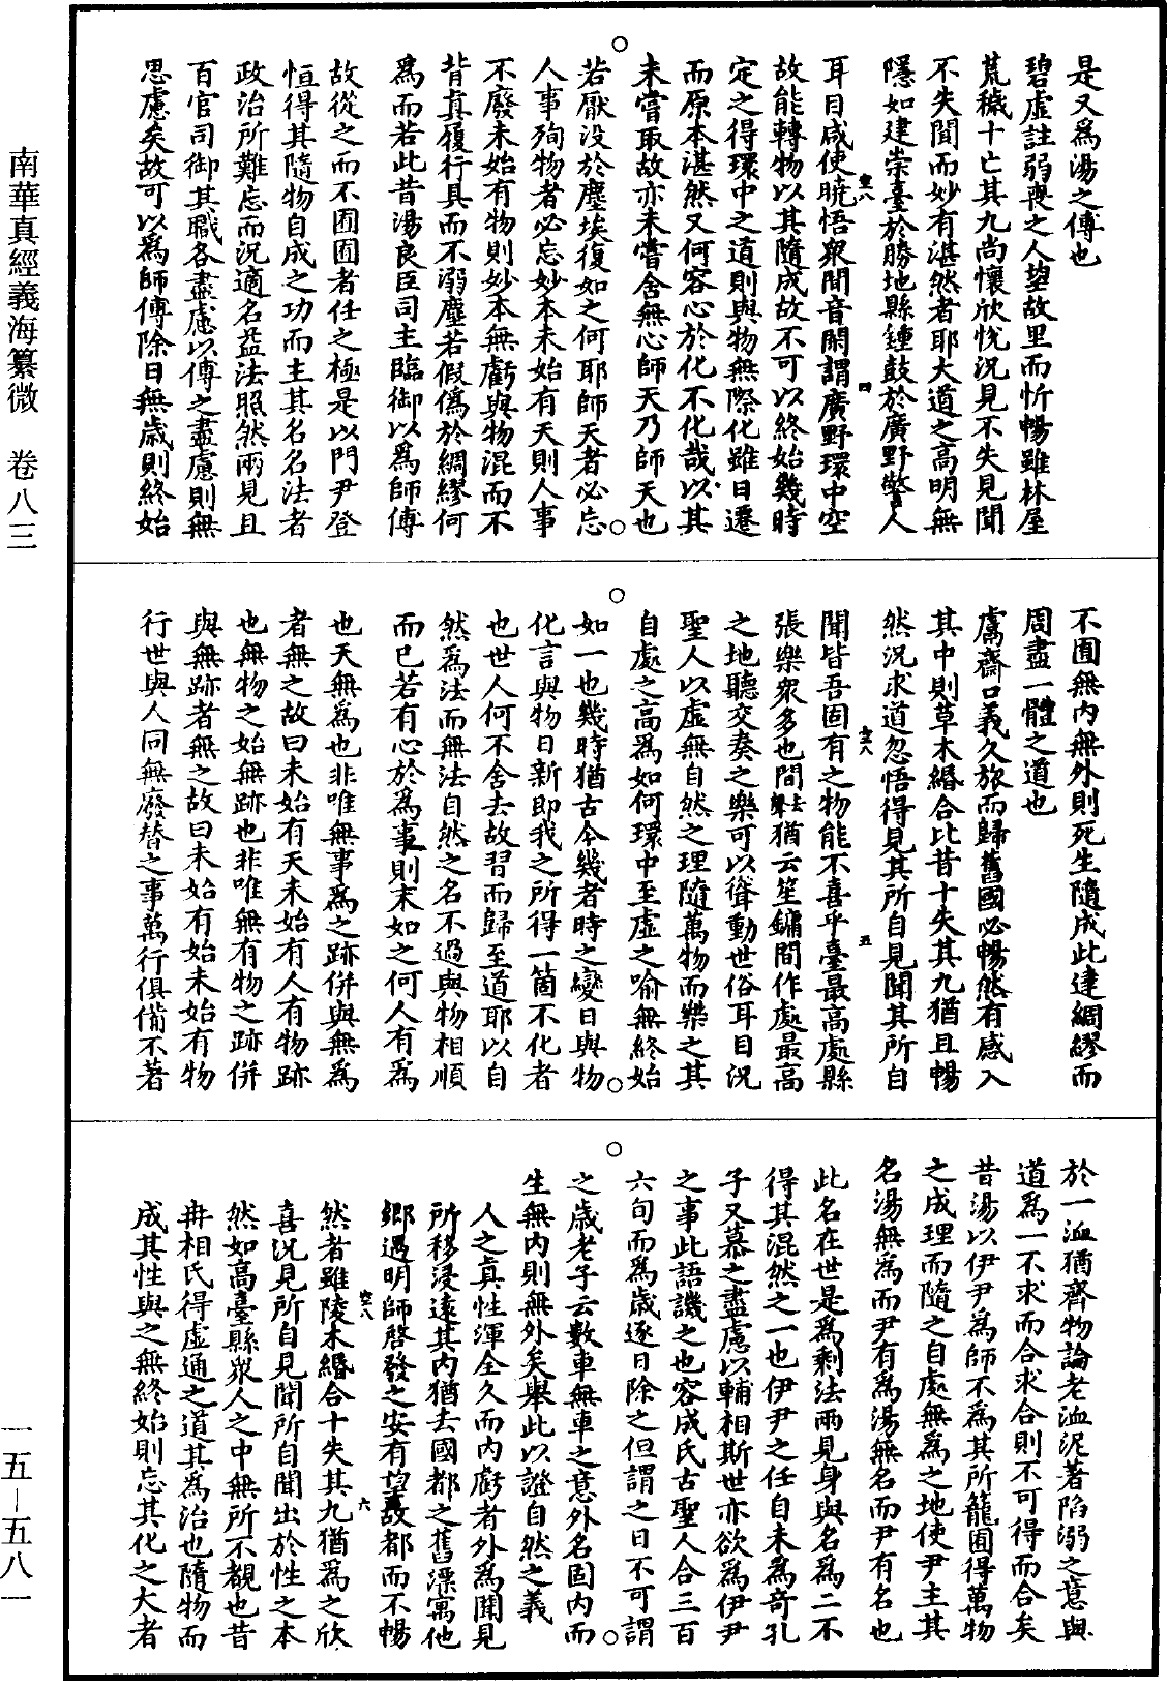 是又爲湯之傅也
碧虛註弱喪之人望故里而忻暢雖林屋
荒穢十亡其九尚懷欣悅況見不失見聞
不失聞而妙有湛然者耶大道之高明無
隱如建崇臺於勝地縣鍾鼓於廣野警人
耳目咸使曉悟衆聞音閑謂廣野環中空
故能轉物以其隨成故不可以終始幾時
定之得環中之道則與物無際化雖日遷
而原本湛然又何容心於化不化哉以其
未嘗取故亦未嘗舍無心師天乃師天也
若厭没於塵埃復如之何耶師天者必忘
人事殉物者必忘妙本未始有天則人事
不廢未始有物則妙本無虧與物混而不
背真履行具而不溺塵若假僞於綢繆何
爲而若此昔湯良臣司主臨御以爲師傅
故從之而不囿囿者任之極是以門尹登
恒得其隨物自成之功而主其名名法者
政治所難忘而況適名益法照然兩見且
百官司御其職各盡慮以傅之盡慮則無
思慮矣故可以爲師傅除日無歲則終始
不囿無内無外則死生隨成此達綢繆而
周盡一體之道也
鬳齋口義久旅而歸舊國必暢然有感入
其中則草木緡合比昔十失其九猶且暢
然況求道忽悟得見其所自見聞其所自
聞皆吾固有之物能不喜乎臺最高處縣
張樂衆多也間去聲猶云笙鏞間作處最高
之地聽交奏之樂可以聳動世俗耳目況
聖人以虛無自然之理隨萬物而樂之其
自處之高爲如何環中至虛之喻無終始
如一也幾時猶古今幾者時之變日與物
化言與物日新即我之所得一箇不化者
也世人何不舍去故習而歸至道耶以自
然爲法而無法自然之名不過與物相順
而已若有心於爲事則末如之何人有爲
也天無爲也非唯無事爲之跡併與無爲
者無之故曰未始有天未始有人有物跡
也無物之始無跡也非唯無有物之跡併
與無跡者無之故曰未始有始未始有物
行世與人同無廢替之事萬行俱備不著
於一洫猶齊物論老洫泥著陷溺之意與
道爲一不求而合求合則不可得而合矣
昔湯以伊尹爲師不爲其所籠囿得萬物
之成理而隨之自處無爲之地使尹主其
名湯無爲而尹有爲湯無名而尹有名也
此名在世是爲剩法兩見身與名爲二不
得其混然之一也伊尹之任自未爲奇孔
子又慕之盡慮以輔相斯世亦欲爲伊尹
之事此語譏之也容成氏古聖人合三百
六旬而爲歲逐日除之但謂之日不可謂
之歲老子云數車無車之意外名固内而
生無内則無外矣舉此以證自然之義
人之真性渾全久而内虧者外爲聞見
所移浸遠其内猶去國都之舊漂寓他
鄉遇明師啓發之安有望故都而不暢
然者雖陵木緡合十失其九猶爲之欣
喜況見所自見聞所自聞出於性之本
然如高臺縣衆人之中無所不覩也昔
冉相氏得虛通之道其爲治也隨物而
成其性與之無終始則忘其化之大者
空八
四
空八
五
空八
六
南華真經義海纂微 卷八三
一五—五八一